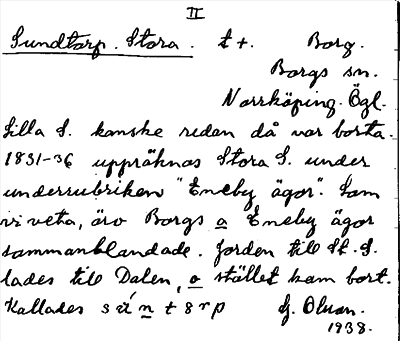 II
Sundtorp. Stora. t +. Borg.
Borgs sn.
Norrköping. Ögl.
Lilla S. kanske redan då var borta.
1831-36 uppräknas Stora S. under
underrubriken "Eneby ägor". Som
vi veta, äro Borgs a Eneby ägor
sammanblandade. Jorden till St. S.
lades till Dalen, o stället kom bort.
Kallades
G. Olson.
1938.